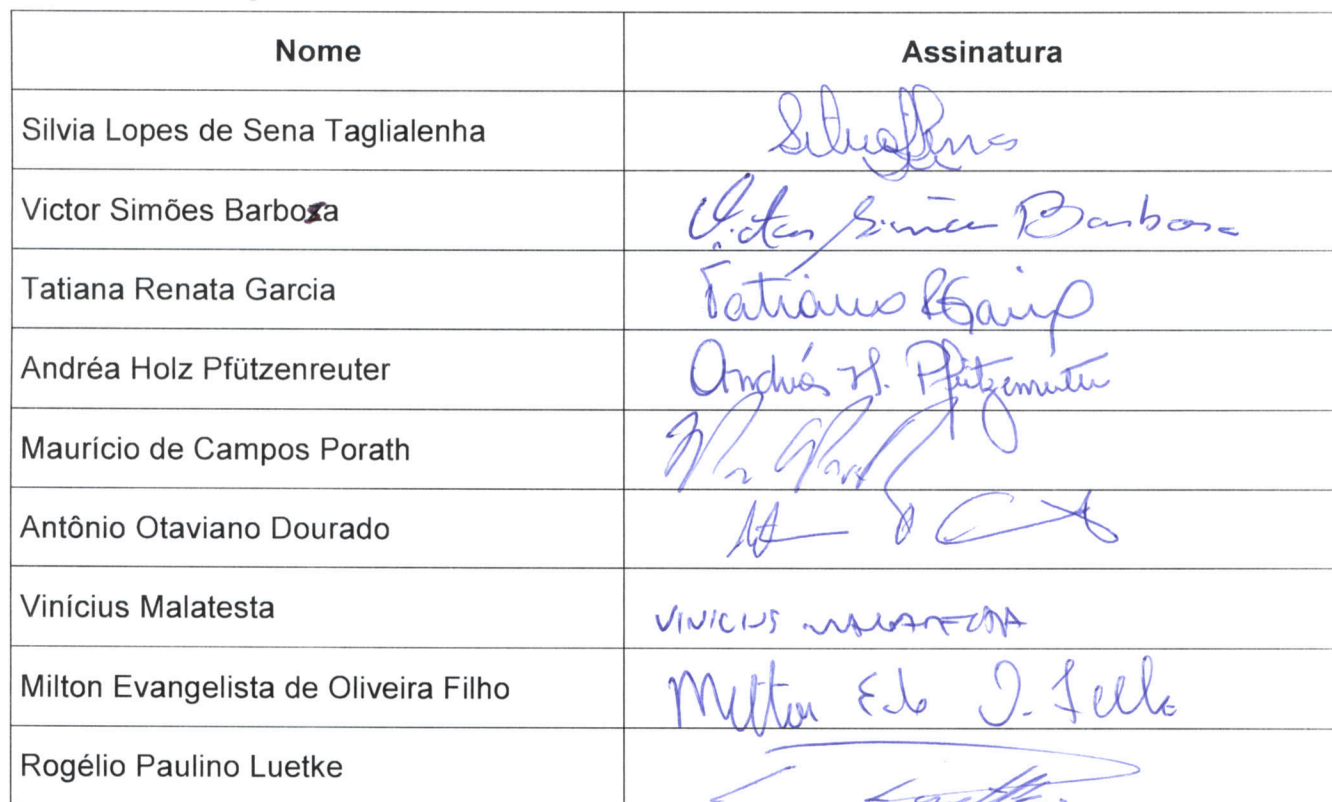 Nome Assinatura
Silvia Lopes de Sena Taglialenha
Victor Simões Barbosa Victor Simões Barbosa
Tatiana Renata Garcia Tatiana RGarcia
Andréa Holz Pfützenreuter Andréa H. Pfützenreuter
Maurício de Campos Porath
Antônio Otaviano Dourado
Vinícius Malatesta VINICIUS MALATESTA
Milton Evangelista de Oliveira Filho Milton E. de O. Filho
Rogélio Paulino Luetke